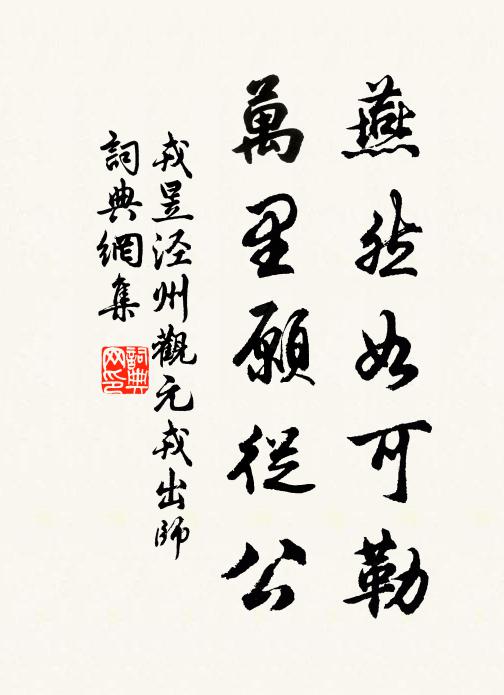 燕然如可勒
萬里願從公
戎昱涇州觀元戎出師
詞典網集
詞典
网印